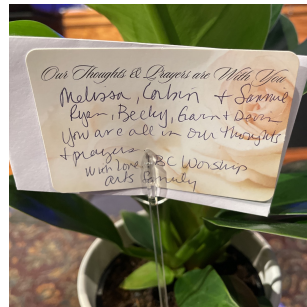 Our Thoughts & Prayers are With You
Melissa, Corbin + Sammie
Ryan, Becky, Gavin + Devin
you are all in our thoughts
+ prayers
With Love, BC Worship
arts family